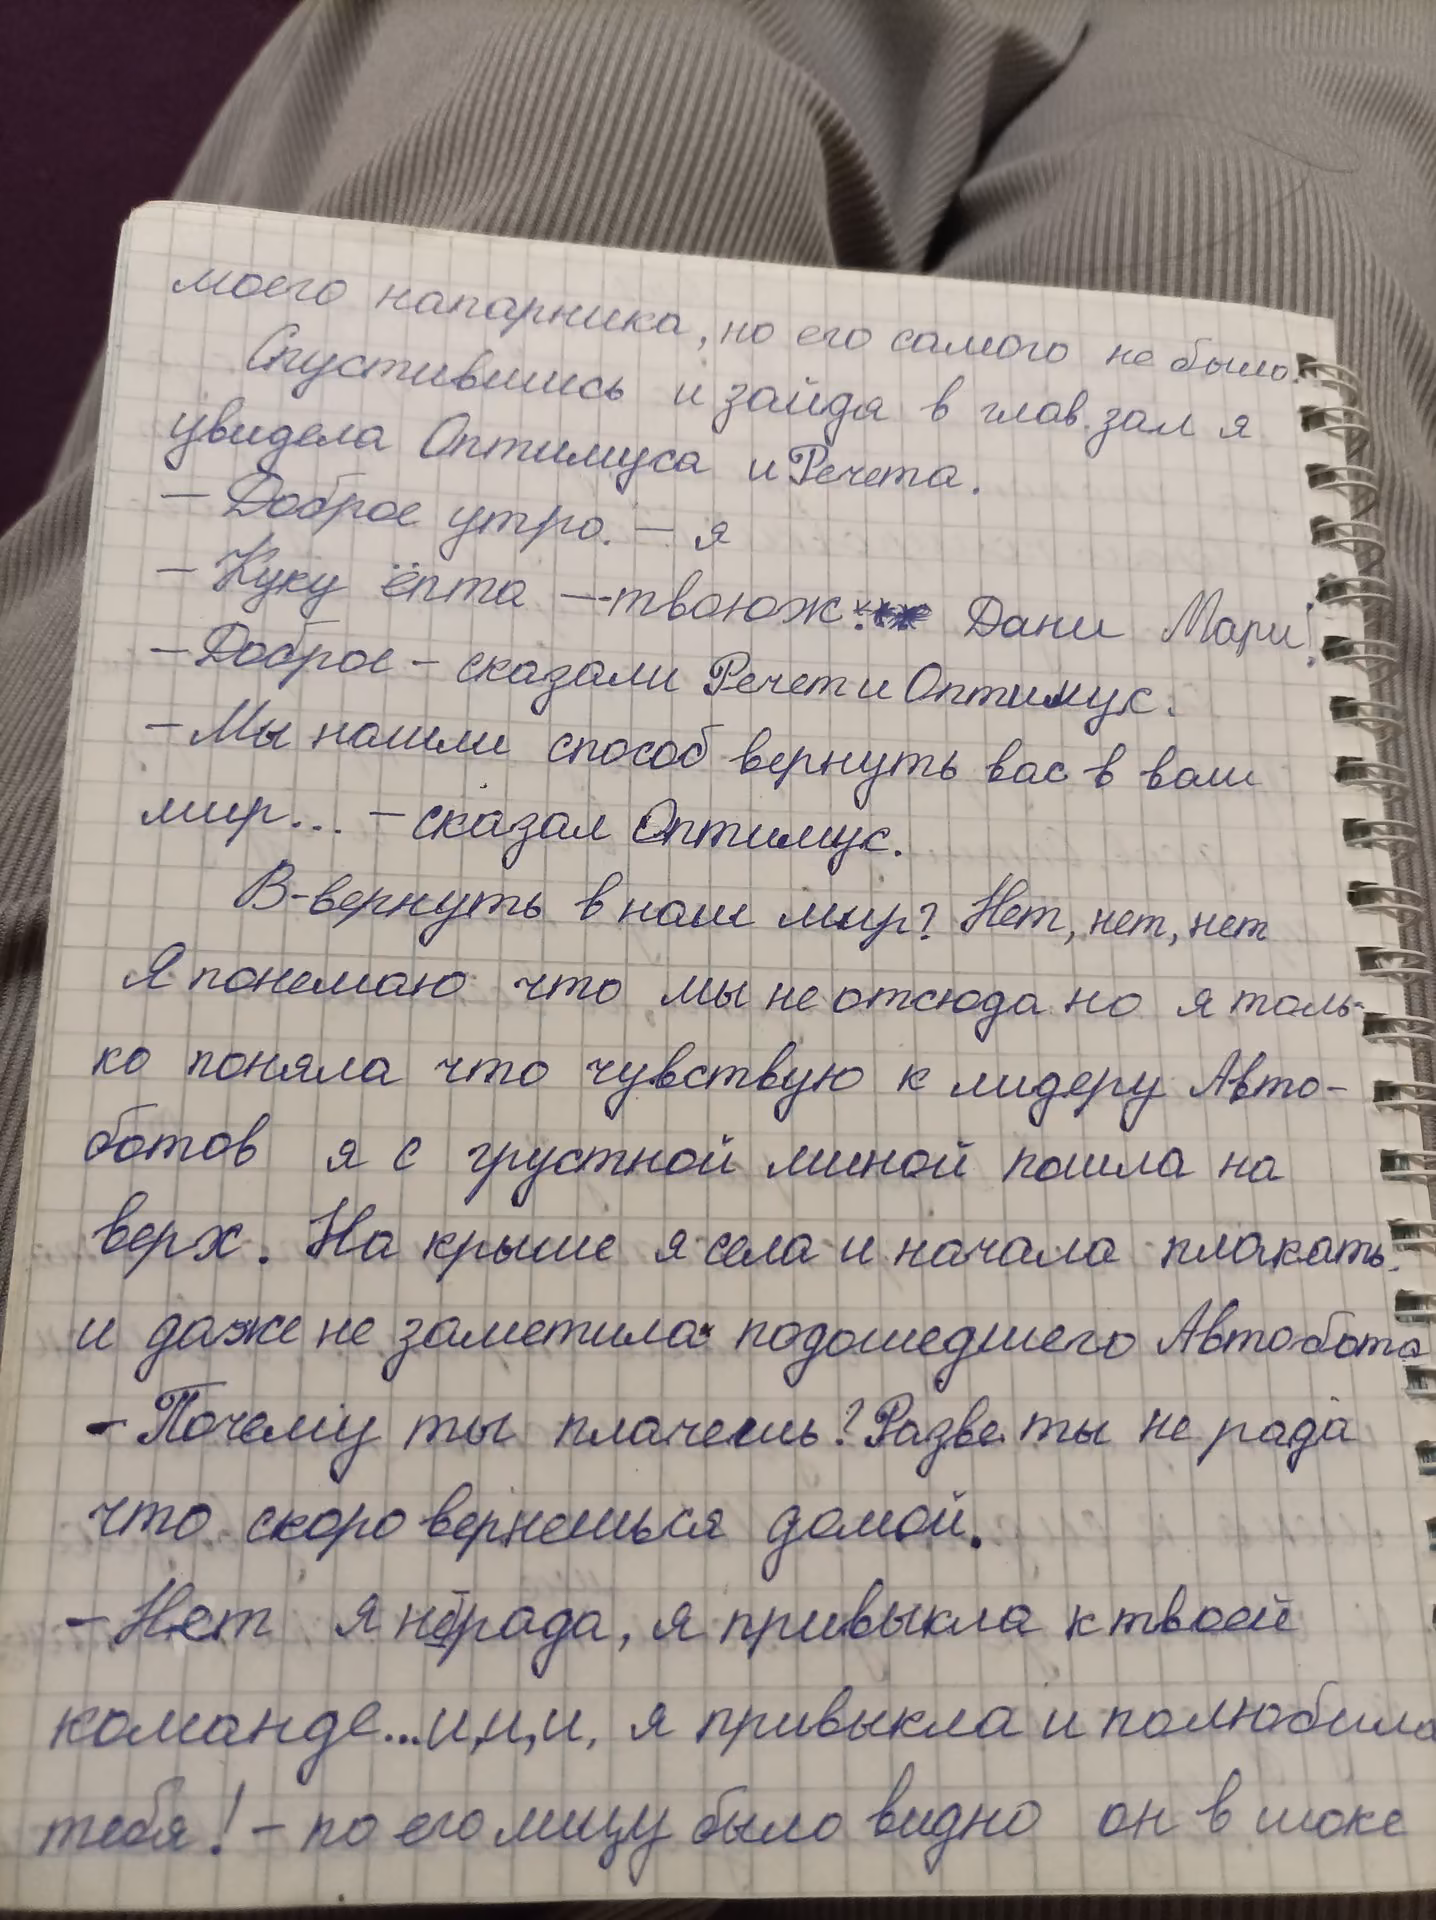 моего напарника, но его самого не было.
Спустившись и зайдя в глав. зал я
увидела Оптимуса и Речета.
— Доброе утро. — я
— Куку ёпта — твоюж: Дани Мари!
— Доброе — сказали Речет и Оптимус.
— Мы нашли способ вернуть вас в ваш
мир... — сказал Оптимус.
В-вернуть в наш мир? Нет, нет, нет
Я понемаю что мы не отсюда но я толь-
ко поняла что чувствую к лидеру Авто-
ботов я с грустной миной пошла на
верх. На крыше я села и начала плакать.
и даже не заметила подошедшего Автобота
— Почему ты плачешь? Разве ты не рада
что скоро вернешься домой.
— Нет я не рада, я привыкла к твоей
команде...и,и,и, я привыкла и полюбила
тебя! — по его лицу было видно он в шоке